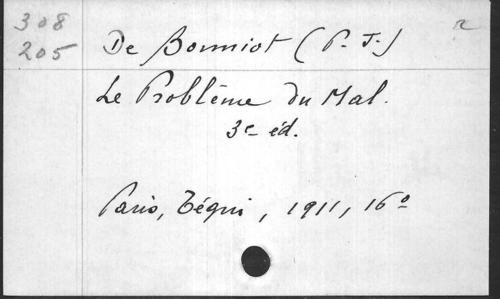 308
205
De Bonniot (P. J.)
Le Problème du Mal.
3e éd.
Paris, Téqui, 1911, 16°